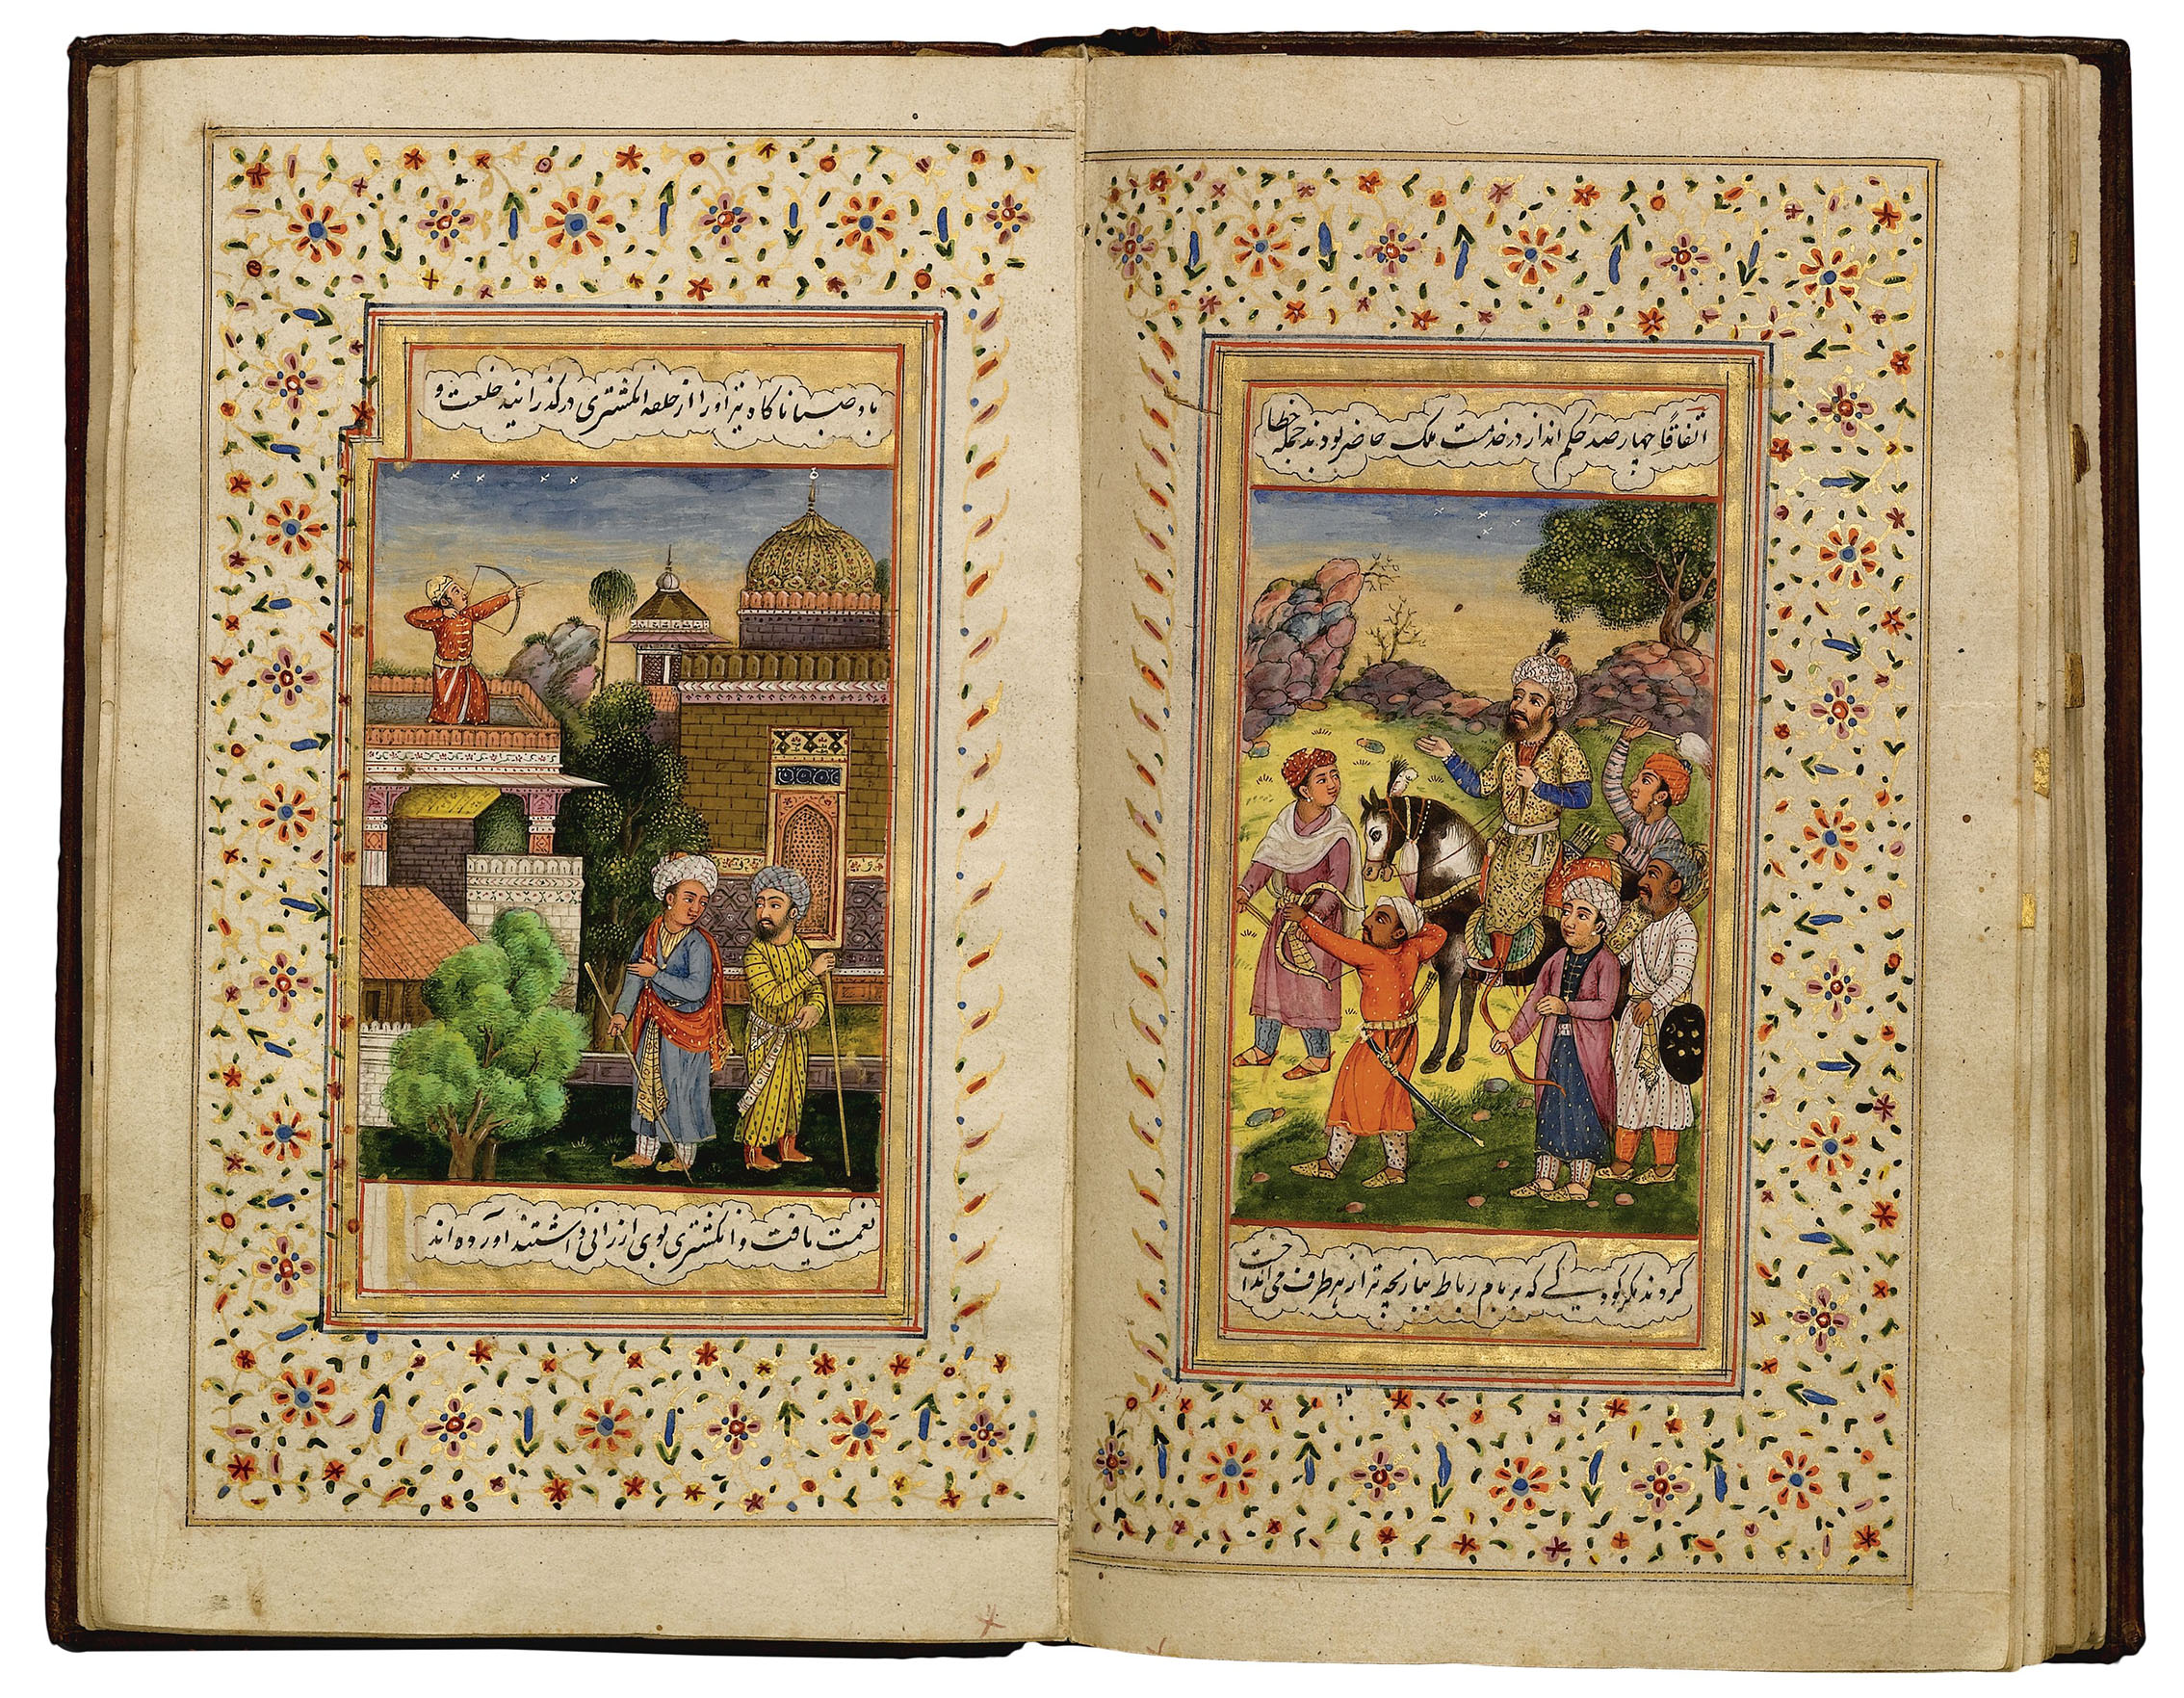 اتفاقًا چهار صد حکم انداز در خدمت ملک حاضر بودند جمله خطا
کردند مگر کودکی که بر بام رباط ببازیچه تیر از هر طرف می انداخت
باد صبا ناگاه تیر او را از حلقه انگشتری در گذرانید خلعت و
نعمت یافت و انگشتری بوی ارزانی داشتند آورده اند